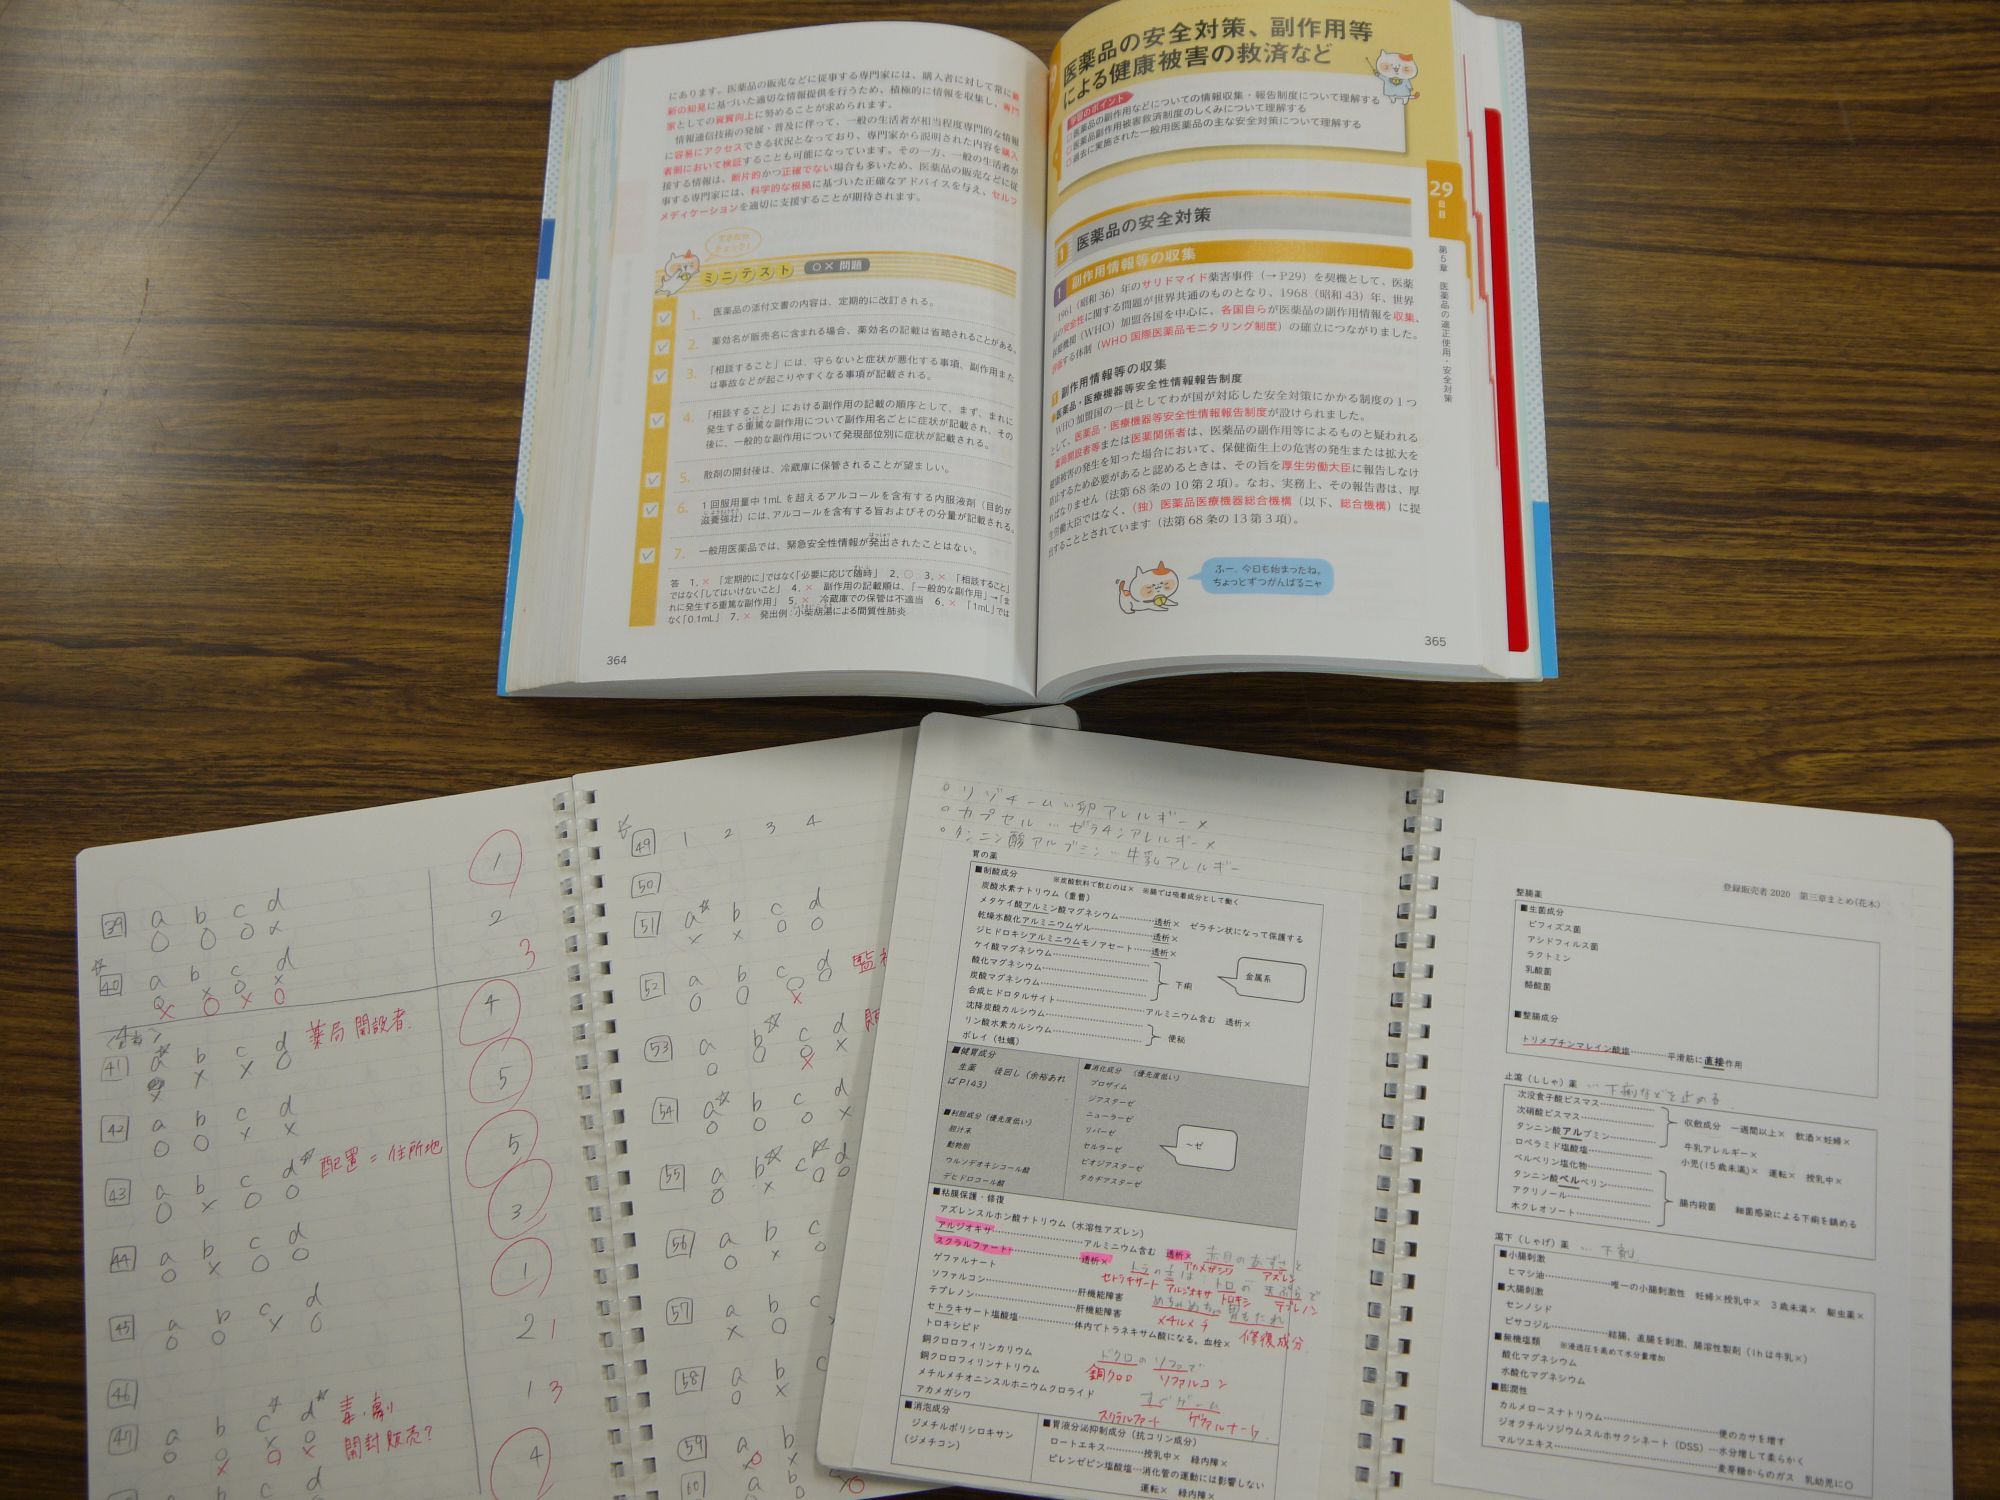 にあります。医薬品の販売などに従事する専門家には、購入者に対して常に最
新の知見に基づいた適切な情報提供を行うため、積極的に情報を収集し、専門
家としての資質向上に努めることが求められます。
情報通信技術の発展・普及に伴って、一般の生活者が相当程度専門的な情報
に容易にアクセスできる状況となっており、専門家から説明された内容を購入
者側において検証することも可能になっています。その一方、一般の生活者が
接する情報は、断片的かつ正確でない場合も多いため、医薬品の販売などに従
事する専門家には、科学的な根拠に基づいた正確なアドバイスを与え、セルフ
メディケーションを適切に支援することが期待されます。
できたら
チェック!
ミニテスト ○×問題
1. 医薬品の添付文書の内容は、定期的に改訂される。
2. 薬効名が販売名に含まれる場合、薬効名の記載は省略されることがある。
3. 「相談すること」には、守らないと症状が悪化する事項、副作用また
は事故などが起こりやすくなる事項が記載される。
4. 「相談すること」における副作用の記載の順序として、まず、まれに
発生する重篤な副作用について副作用名ごとに症状が記載され、その
後に、一般的な副作用について発現部位別に症状が記載される。
5. 散剤の開封後は、冷蔵庫に保管されることが望ましい。
6. 1回服用量中1mLを超えるアルコールを含有する内服液剤(目的が
滋養強壮)には、アルコールを含有する旨およびその分量が記載される。
7. 一般用医薬品では、緊急安全性情報が発出されたことはない。
答 1.× 「定期的に」ではなく「必要に応じて随時」 2.○ 3.× 「相談すること」
ではなく「してはいけないこと」 4.× 副作用の記載順は、「一般的な副作用」→「ま
れに発生する重篤な副作用」 5.× 冷蔵庫での保管は不適当 6.× 「1mL」では
なく「0.1mL」 7.× 発出例:小柴胡湯による間質性肺炎
364
医薬品の安全対策、副作用等
による健康被害の救済など
学習のポイント
□医薬品の副作用などについての情報収集・報告制度について理解する
□医薬品副作用被害救済制度のしくみについて理解する
□過去に実施された一般用医薬品の主な安全対策について理解する
29
日目
第5章 医薬品の適正使用・安全対策
1 医薬品の安全対策
1 副作用情報等の収集
1961(昭和36)年のサリドマイド薬害事件(→P29)を契機として、医薬
品の安全性に関する問題が世界共通のものとなり、1968(昭和43)年、世界
保健機関(WHO)加盟各国を中心に、各国自らが医薬品の副作用情報を収集、
評価する体制(WHO国際医薬品モニタリング制度)の確立につながりました。
1 副作用情報等の収集
●医薬品・医療機器等安全性情報報告制度
WHO加盟国の一員としてわが国が対応した安全対策にかかる制度の1つ
として、医薬品・医療機器等安全性情報報告制度が設けられました。
薬局開設者等または医薬関係者は、医薬品の副作用等によるものと疑われる
健康被害の発生を知った場合において、保健衛生上の危害の発生または拡大を
防止するため必要があると認めるときは、その旨を厚生労働大臣に報告しなけ
ればなりません(法第68条の10第2項)。なお、実務上、その報告書は、厚
生労働大臣ではなく、(独)医薬品医療機器総合機構(以下、総合機構)に提
出することとされています(法第68条の13第3項)。
ふー、今日も始まったね。
ちょっとずつがんばるニャ
365
39 a b c d
○ ○ ○ ×
☆
40 a b c d
○ × ○ ×
× ○ × ○
41 a☆ b c d 薬局開設者
× × ○
42 a b c d
○ ○ × ×
43 a b c d☆ 配置=住所地
○ × ○ ○
44 a b c d
○ × ○ ○
45 a b c d
○ ○ × ○
46
47 a b c☆ d☆ 毒・劇
○ ○ × ○
× ○ × 開封販売?
1
2
3
4
5
5
3
1
2 1
1 3
4
☆ 49 1 2 3 4
50
51 a☆ b c d
× × ○ ○
52 a b c d
○ ○ ○ ○
×
53 a b☆ c d
○ ○ ○ ×
×
54 a☆ b c d
○ ○ ○ ×
55 a b☆ c☆ d
○ × ○ ○
56 a b c
○ × ○
57 a b c
× ○
58 a b
○ ×
59 a b
60 a b
○リゾチーム…卵アレルギー×
○カプセル…ゼラチンアレルギー×
○タンニン酸アルブミン…牛乳アレルギー
胃の薬
■制酸成分 ※炭酸飲料で飲むのは× ※腸では吸着成分として働く
炭酸水素ナトリウム(重曹)
メタケイ酸アルミン酸マグネシウム…………透析× ゼラチン状になって保護する
乾燥水酸化アルミニウムゲル…………透析×
ジヒドロキシアルミニウムモノアセート……透析×
ケイ酸マグネシウム
酸化マグネシウム
炭酸マグネシウム
下痢
金属系
合成ヒドロタルサイト…………アルミニウム含む 透析×
沈降炭酸カルシウム
リン酸水素カルシウム
ボレイ(牡蠣)
便秘
■健胃成分
生薬 後回し(余裕あれ
ばP143)
■利胆成分(優先度低い)
胆汁末
動物胆
ウルソデオキシコール酸
デヒドロコール酸
■消化成分 (優先度低い)
プロザイム
ジアスターゼ
ニューラーゼ
リパーゼ
セルラーゼ
ビオジアスターゼ
タカヂアスターゼ
~ゼ
■粘膜保護・修復
アズレンスルホン酸ナトリウム(水溶性アズレン)
アルジオキサ…………アルミニウム含む 透析×
スクラルファート…………透析×
ゲファルナート
ソファルコン…………肝機能障害
テプレノン…………肝機能障害
セトラキサート塩酸塩…………体内でトラネキサム酸になる。血栓×
トロキシピド
銅クロロフィリンカリウム
銅クロロフィリンナトリウム
メチルメチオニンスルホニウムクロライド
アカメガシワ
赤目のあずさと
アカメガシワ アズレン
セトラキサート アルジオキサ トロキシ テプレノン
メチルメチ 修復成分
ドクロのソファで
銅クロロ ソファルコン
スクラルファート ゲファルナート
■消泡成分
ジメチルポリシロキサン
(ジメチコン)
■胃液分泌抑制成分(抗コリン成分)
ロートエキス…………授乳中× 緑内障×
ピレンゼピン塩酸塩…消化管の運動には影響しない
運転× 緑内障×
登録販売者2020 第三章まとめ(花木)
整腸薬
■生菌成分
ビフィズス菌
アシドフィルス菌
ラクトミン
乳酸菌
酪酸菌
■整腸成分
トリメブチンマレイン酸塩…………平滑筋に直接作用
止瀉(ししゃ)薬 …下痢などを止める
次没食子酸ビスマス
次硝酸ビスマス
収斂成分 一週間以上× 飲酒×妊婦×
タンニン酸アルブミン 牛乳アレルギー×
ロペラミド塩酸塩 小児(15歳未満)× 運転× 授乳中×
ベルベリン塩化物
タンニン酸ベルベリン
アクリノール
木クレオソート
腸内殺菌 細菌感染による下痢を鎮める
瀉下(しゃげ)薬 …下剤
■小腸刺激
ヒマシ油…………唯一の小腸刺激性 妊婦×授乳中× 3歳未満× 駆虫薬×
■大腸刺激
センノシド
ビサコジル…………結腸、直腸を刺激、腸溶性製剤(1hは牛乳×)
■無機塩類 ※浸透圧を高めて水分量増加
酸化マグネシウム
水酸化マグネシウム
■膨潤性
カルメロースナトリウム…………便のカサを増す
ジオクチルソジウムスルホサクシネート(DSS)…水分増して柔らかく
マルツエキス…………麦芽糖からのガス 乳幼児に○